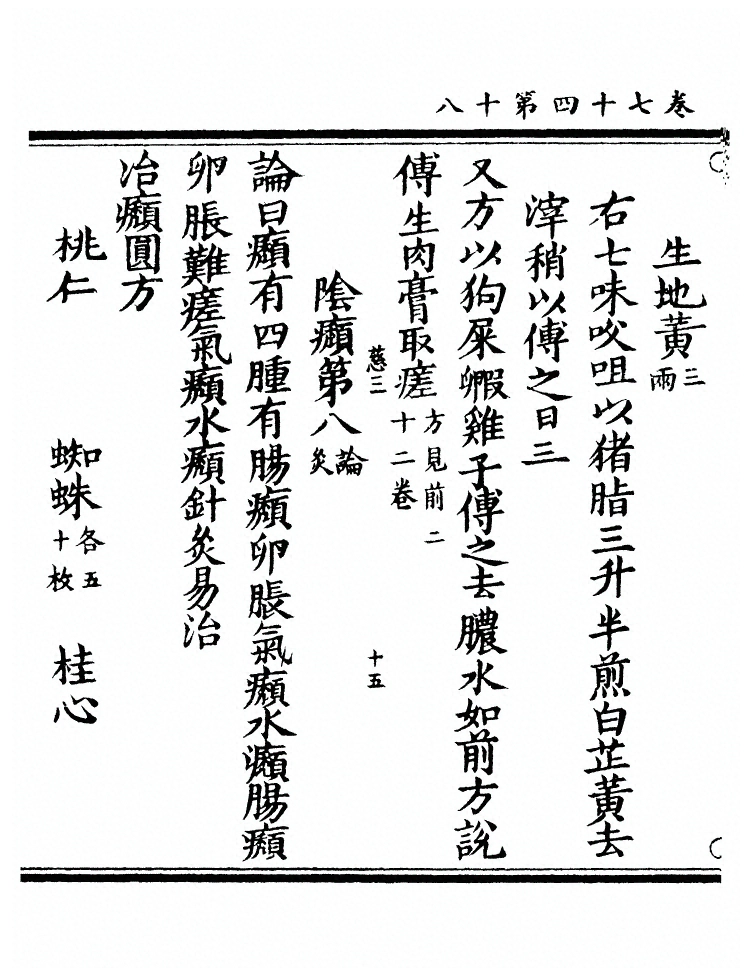 卷七十四第十八
生地黃三兩
右七味㕮咀以猪脂三升半煎白芷黃去
滓稍以傅之日三
又方以狗屎㱩雞子傅之去膿水如前方說
傅生肉膏取瘥方見前二十二卷
慈三 十五
陰㿗第八論灸
論曰㿗有四腫有腸㿗卵脹氣㿗水㿗腸㿗
卵脹難瘥氣㿗水㿗針灸易治
治㿗圓方
桃仁 蜘蛛各五十枚 桂心